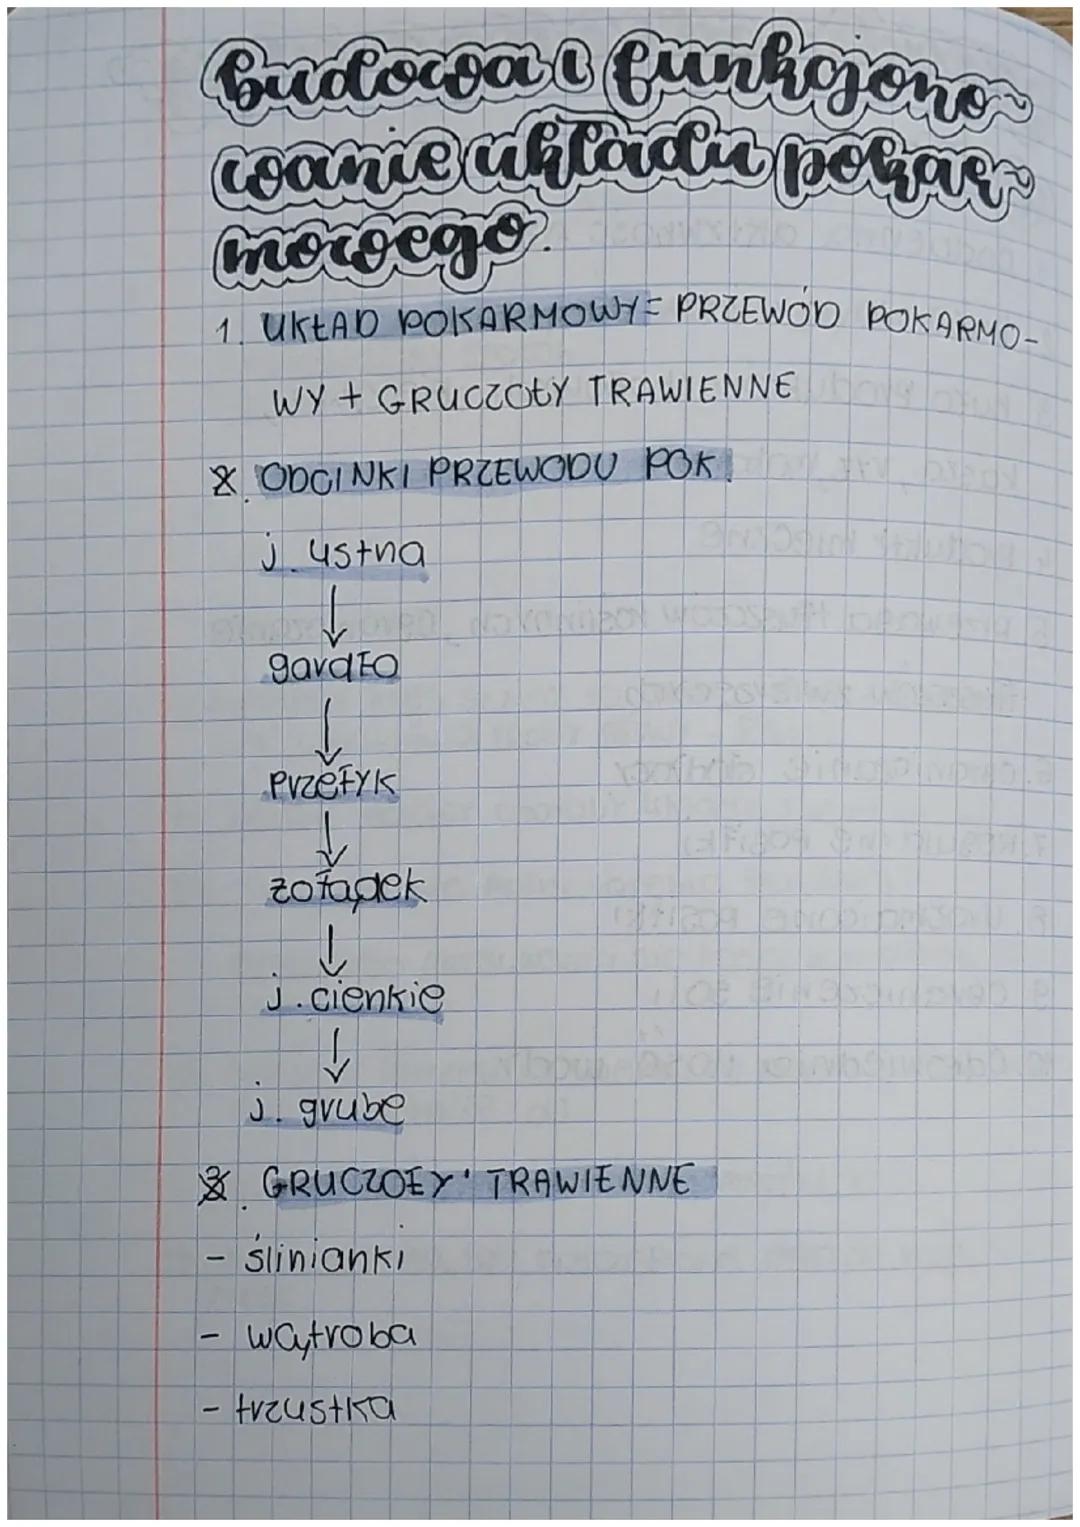 Budowa i funkcjono-
wanie układu pokar-
mowego.
1. UKŁAD POKARMOWY= PRZEWÓD POKARMO-
WY + GRUCZOŁY TRAWIENNE
2. ODCINKI PRZEWODU POK.
j. ustna
↓
gardło
↓
przełyk
↓
żołądek
↓
j. cienkie
↓
j. grube
3. GRUCZOŁY TRAWIENNE
- ślinianki
- wątroba
- trzustka